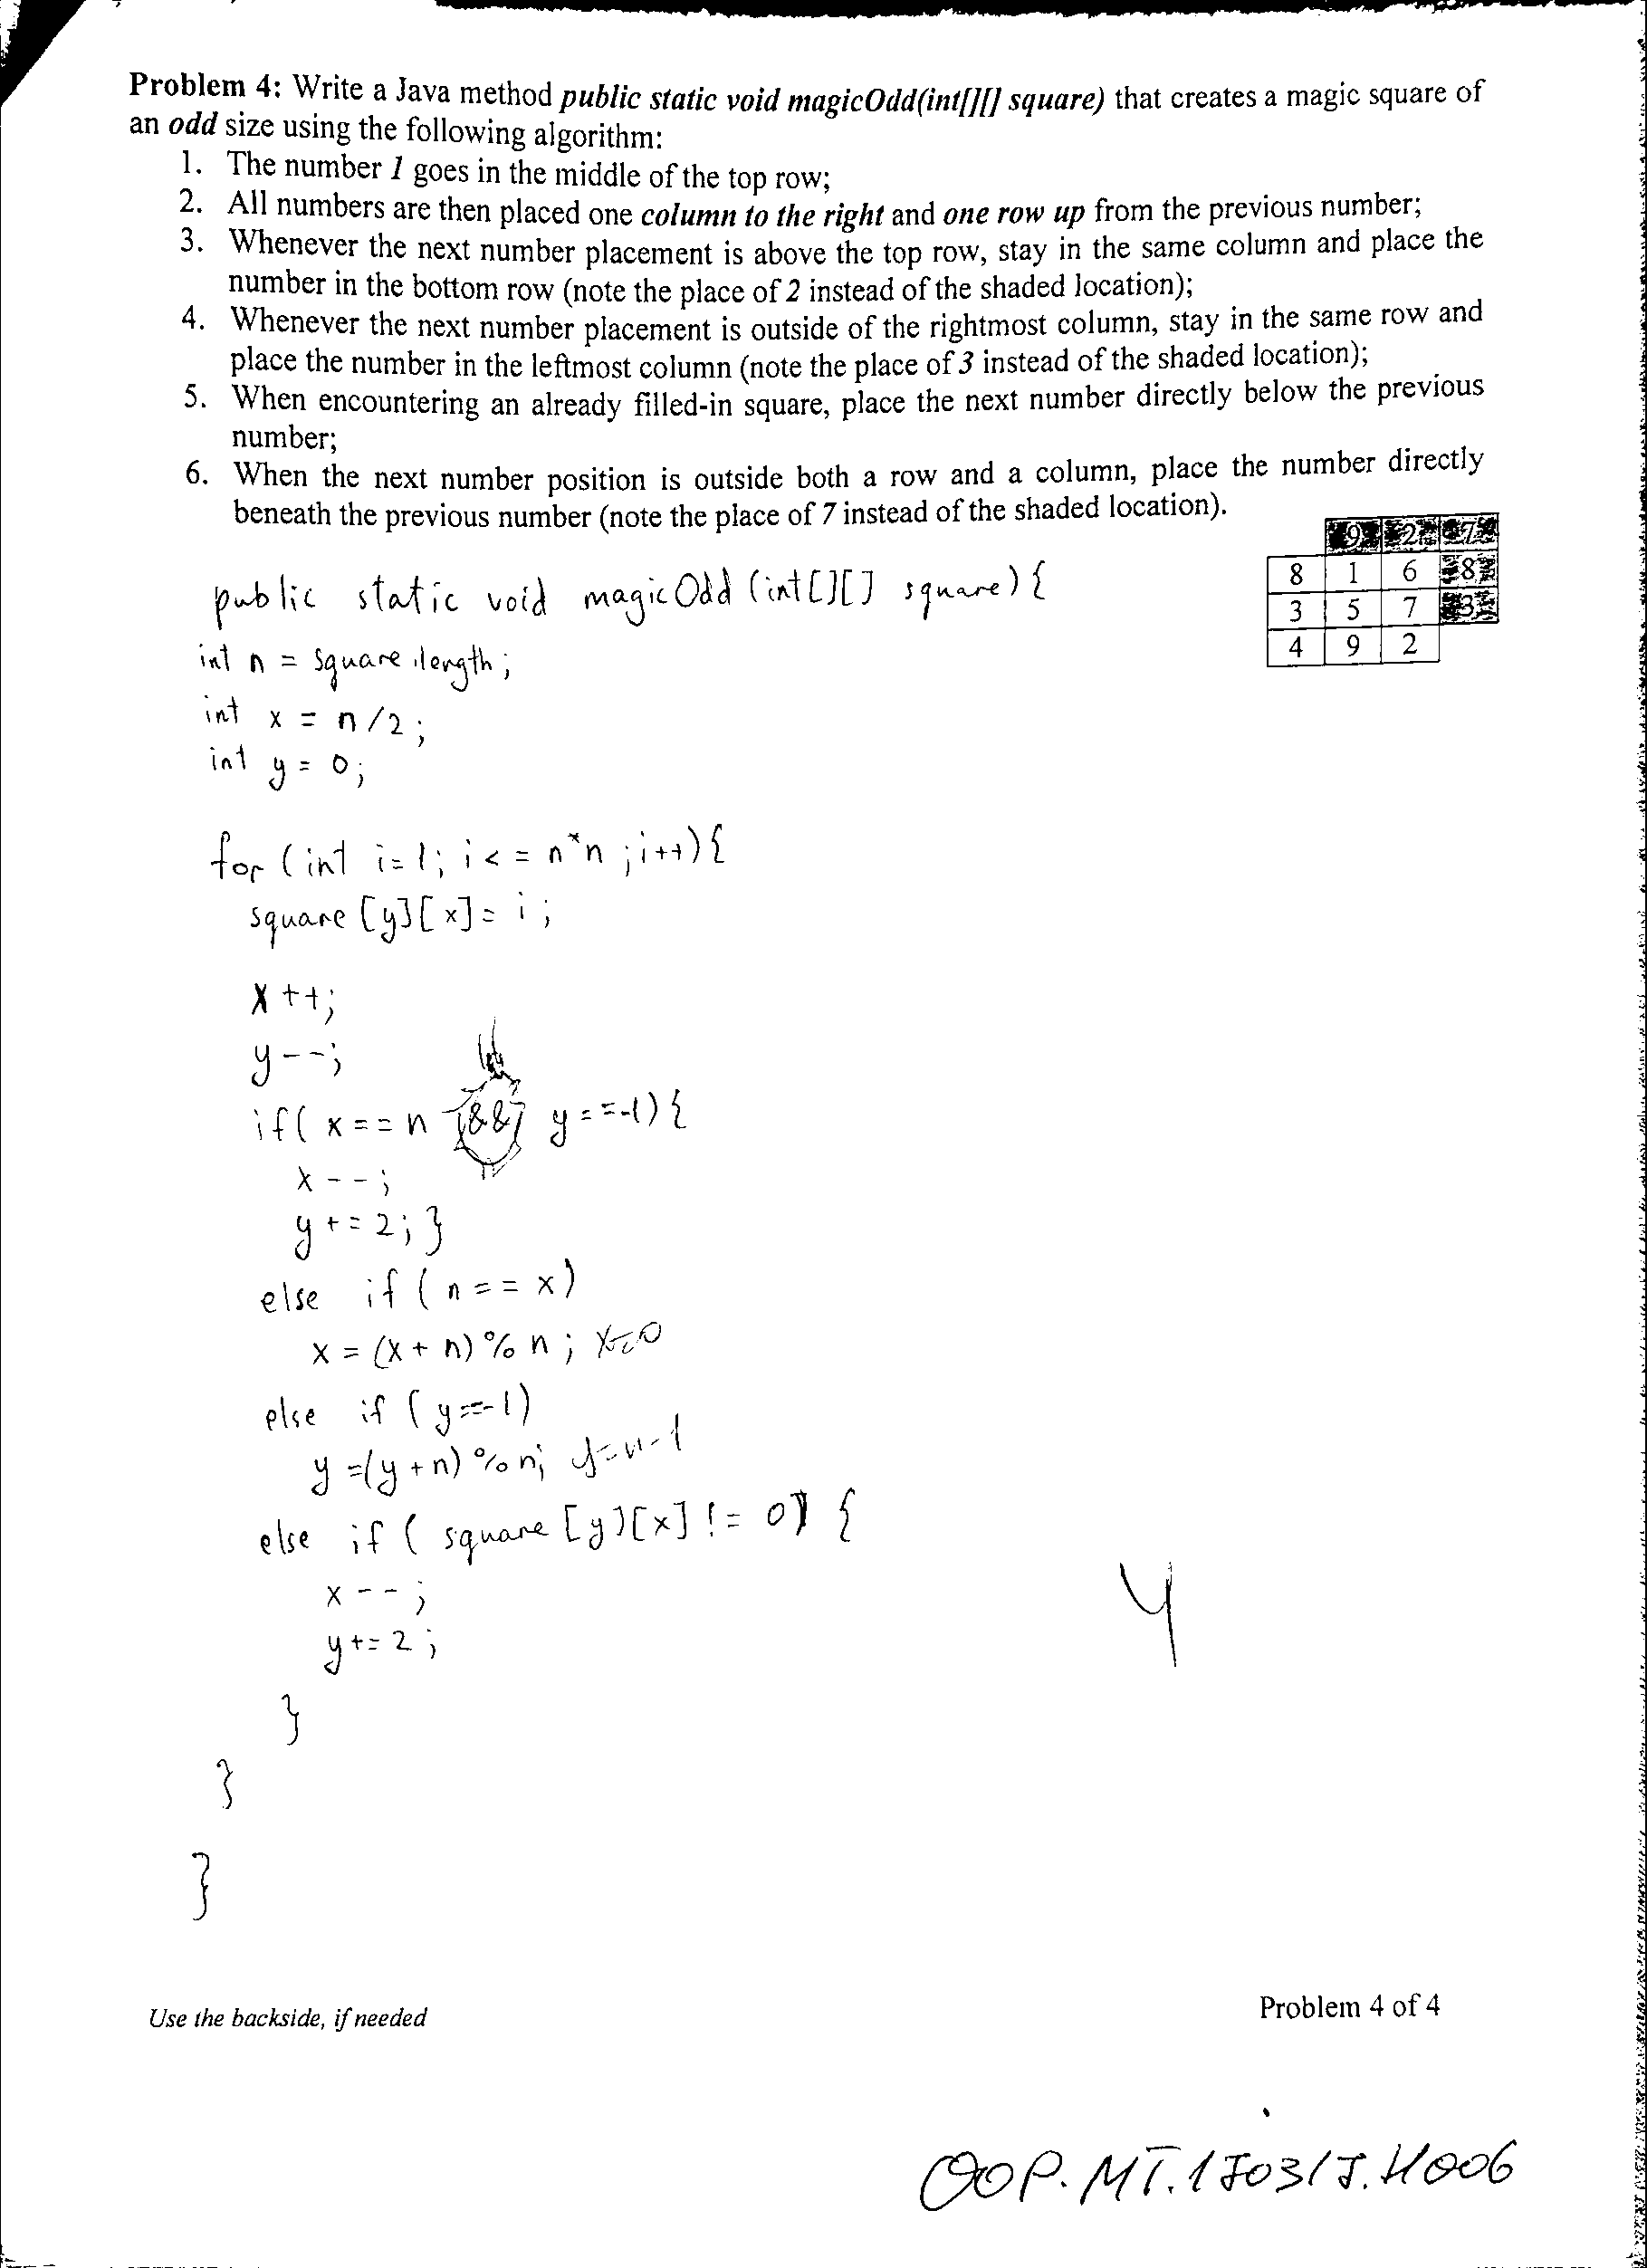 Problem 4: Write a Java method public static void magicOdd(int[][] square) that creates a magic square of
an odd size using the following algorithm:
1. The number 1 goes in the middle of the top row;
2. All numbers are then placed one column to the right and one row up from the previous number;
3. Whenever the next number placement is above the top row, stay in the same column and place the
number in the bottom row (note the place of 2 instead of the shaded location);
4. Whenever the next number placement is outside of the rightmost column, stay in the same row and
place the number in the leftmost column (note the place of 3 instead of the shaded location);
5. When encountering an already filled-in square, place the next number directly below the previous
number;
6. When the next number position is outside both a row and a column, place the number directly
beneath the previous number (note the place of 7 instead of the shaded location).
9 2 7
8 1 6 8
3 5 7 3
4 9 2
public static void magicOdd (int[][] square) {
int n = square.length;
int x = n/2;
int y = 0;
for (int i=1; i<=n*n; i++){
square [y][x] = i;
x++;
y--;
if( x==n && y==-1) {
x--;
y+=2; }
else if (n==x)
x = (x+n)%n; x=0
else if (y==-1)
y=(y+n)%n; y=n-1
else if ( square [y][x] != 0) {
x--;
y+=2;
}
}
}
4
Use the backside, if needed
Problem 4 of 4
OOP.MT.150315.H006